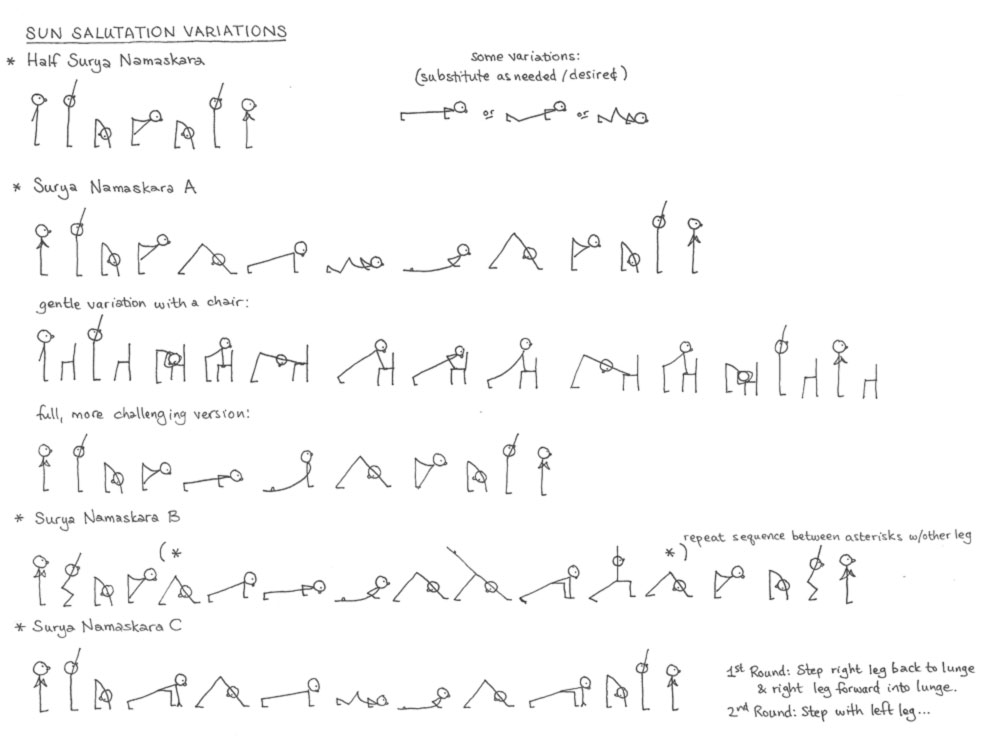 SUN SALUTATION VARIATIONS
* Half Surya Namaskara
some variations:
(substitute as needed/desired)
or
or
* Surya Namaskara A
gentle variation with a chair:
full, more challenging version:
* Surya Namaskara B
(*
*)
repeat sequence between asterisks w/other leg
* Surya Namaskara C
1st Round: Step right leg back to lunge
& right leg forward into lunge.
2nd Round: Step with left leg...